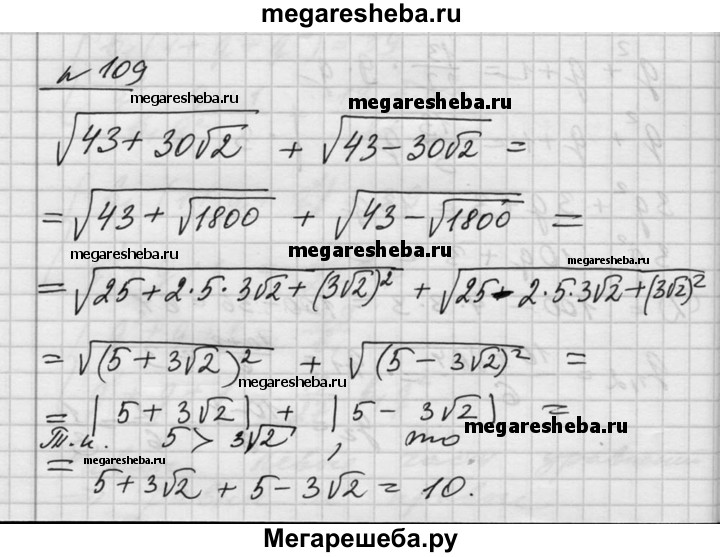 megaresheba.ru
№ 109
megaresheba.ru megaresheba.ru
√(43 + 30√2) + √(43 − 30√2) =
= √(43 + √1800) + √(43 − √1800) =
megaresheba.ru megaresheba.ru megaresheba.ru
= √(25 + 2·5·3√2 + (3√2)²) + √(25 − 2·5·3√2 + (3√2)²)
= √((5 + 3√2)²) + √((5 − 3√2)²) =
megaresheba.ru
= |5 + 3√2| + |5 − 3√2| =
Т.к. 5 > 3√2, то
megaresheba.ru
= 5 + 3√2 + 5 − 3√2 = 10.
megaresheba.ru
Мегарешеба.ру